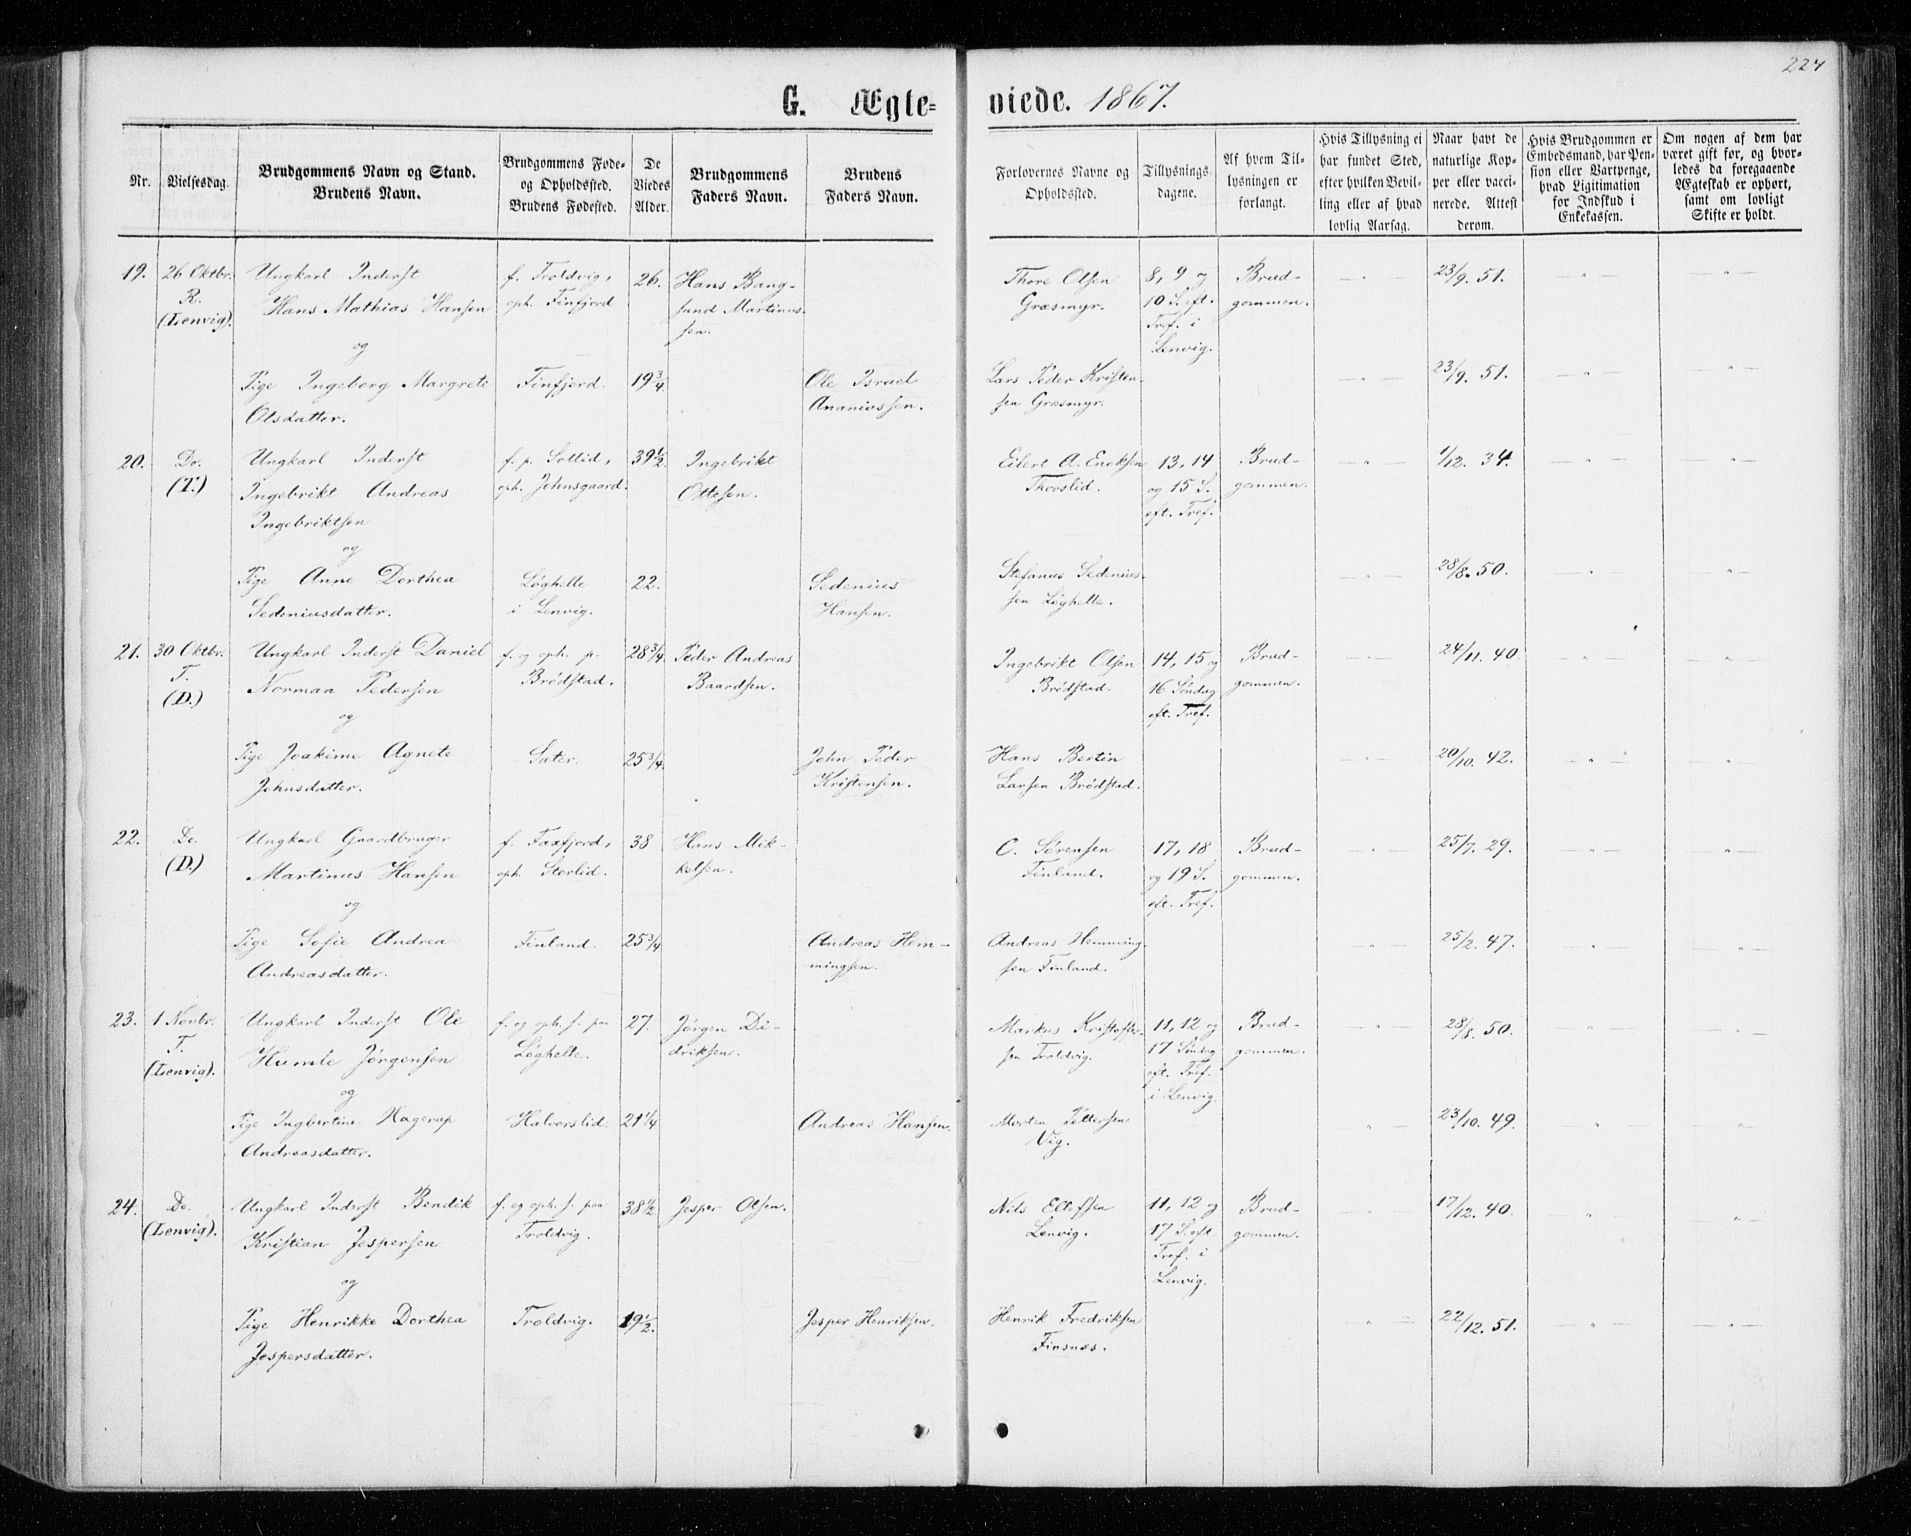 227
G. Ægte= viede. 1867.
Nr.
Vielsesdag.
Brudgommens Navn og Stand.
Brudens Navn.
Brudgommens Føde-
og Opholdssted.
Brudens Fødested.
De
Viedes
Alder.
Brudgommens
Faders Navn.
Brudens
Faders Navn.
Forlovernes Navne og
Opholdssted.
Tillysnings-
dagene.
Af hvem Til-
lysningen er
forlangt.
Hvis Tillysning ei
har fundet Sted,
efter hvilken Bevil-
ling eller af hvad
lovlig Aarsag.
Naar havt de
naturlige Kop-
per eller vacci-
nerede. Attest
derom.
Hvis Brudgommen er
Embedsmand, har Pen-
sion eller Vartpenge,
hvad Ligitimation
for Indskud i
Enkekassen.
Om nogen af dem har
været gift før, og hvor-
ledes da foregaaende
Ægteskab er ophørt,
samt om lovligt
Skifte er holdt.
19. 26 Oktbr. Ungkarl Inderst f. Troldvig, 26. Hans Bang- Thore Olsen 8, 9 og Brud- 23/9. 51.
R. Hans Mathias Hansen oph. Finfjord sund Martinus- Græsmyr. 10 S. eft. gommen.
(Lenvig). sen. Tref. i
og Lenvig.
Pige Ingeborg Margrete Finfjord. 19 3/4 Ole Israel Lars Peder Kristen- 23/9. 51.
Olsdatter. Ananiassen. sen Græsmyr.
20. Do. Ungkarl Inderst f. p. Sollid, 39 1/2. Ingebrikt Eilert A. Enoksen 13, 14 Brud- 1/12. 34.
(T.) Ingebrikt Andreas oph. Johnsgaard. Ottesen. Thorslid. og 15 S. gommen.
Ingebriktsen eft. Tref.
og
Pige Anne Dorthea Løghelle 22. Sedenius Stefanus Sedenius- 28/8. 50.
Sedeniusdatter. i Lenvig. Hansen. sen Løghelle.
21. 30 Oktbr. Ungkarl Inderst Daniel f. og oph. p. 28 3/4. Peder Andreas Ingebrikt Olsen 14, 15 og Brud- 24/11. 40.
T. Norman Pedersen Brødstad. Baardsen. Brødstad. 16 Søndag gommen.
(D.) og eft. Tref.
Pige Joakime Agnete Sæter. 25 3/4. John Peder Hans Bertin 20/10. 42.
Johnsdatter. Kristensen. Larsen Brødstad.
22. Do. Ungkarl Gaardbruger f. Faxfjord, 38 Hans Mik- O. Sørensen 17, 18 Brud- 25/7. 29.
(D.) Martinus Hansen oph. Sterlid. kelsen. Finland. og 19 S. gommen.
og eft. Tref.
Pige Sofie Andrea Finland. 25 3/4 Andreas Hem- Andreas Hemming- 25/2. 47.
Andreasdatter. mingsen. sen Finland.
23. 1 Novbr. Ungkarl Inderst Ole f. og oph. s. paa 27. Jørgen Di- Markus Kristoffer- 11, 12 og Brud- 28/8. 50.
T. Humle Jørgensen Løghelle. driksen. sen Troldvig. 17 Søndag gommen.
(Lenvig). eft. Tref.
og i Lenvig.
Pige Ingbertine Hagerup Halvorslid. 21 1/4 Andreas Hansen. Morten Pettersen 23/10. 49.
Andreasdatter. Vig.
24. Do. Ungkarl Inderst Bendik f. og oph. s. paa 38 1/2 Jesper Olsen. Nils Ellefsen 11, 12 og Brud- 17/12. 40.
(Lenvig). Kristian Jespersen Troldvig. Lenvig. 17 S. eft. gommen.
Tref. i
og Lenvig.
Pige Henrikke Dorthea Troldvig. 19 1/2. Jesper Henriksen. Henrik Fredriksen 22/12. 51.
Jespersdatter. Finsnæs.